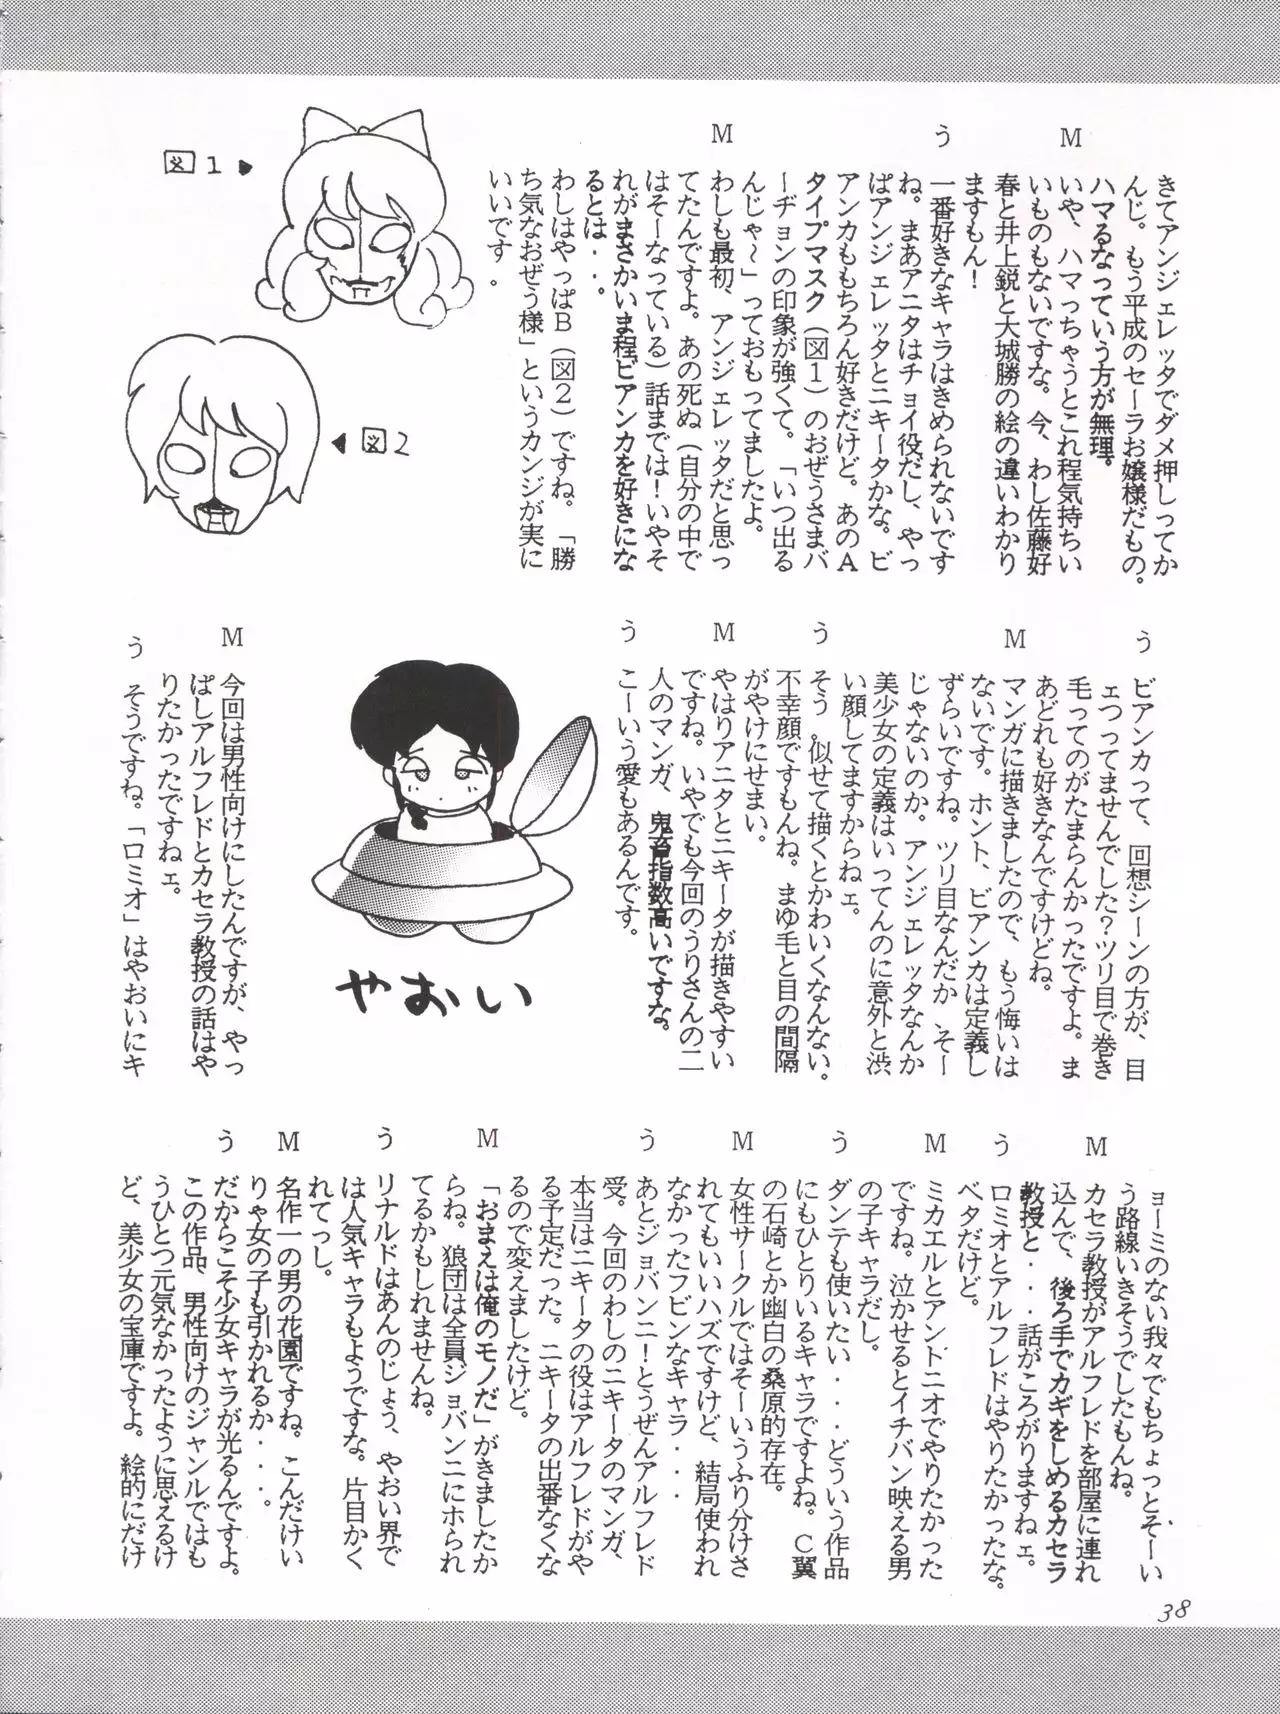 M
う
M
きてアンジェレッタでダメ押しってか
んじ。もう平成のセーラお嬢様だもの。
ハマるなっていう方が無理。
いや、ハマっちゃうとこれ程気持ちい
いものもないですな。今、わし佐藤好
春と井上鋭と大城勝の絵の違いわかり
ますもん！
一番好きなキャラはきめられないです
ね。まあアニタはチョイ役だし、やっ
ぱアンジェレッタとニキータかな。ビ
アンカももちろん好きだけど。あのA
タイプマスク（図1）のおぜうさまバ
ージョンの印象が強くて。「いつ出る
んじゃ～」っておもってましたよ。
わしも最初、アンジェレッタだと思っ
てたんですよ。あの死ぬ（自分の中で
はそーなっている）話までは！いやそ
れがまさかいま程ビアンカを好きにな
るとは・・。
わしはやっぱB（図2）ですね。「勝
ち気なおぜう様」というカンジが実に
いいです。
図1
図2
う
M
う
M
う
M
う
ビアンカって、回想シーンの方が、目
ェつってませんでした？ツリ目で巻き
毛ってのがたまらんかったですよ。ま
あどれも好きなんですけどね。
マンガに描きましたので、もう悔いは
ないです。ホント、ビアンカは定義し
ずらいですね。ツリ目なんだか そ～
じゃないのか。アンジェレッタなんか
美少女の定義はいってんのに意外と渋
い顔してますからねェ。
そう 似せて描くとかわいくなんない。
不幸顔ですもんね。まゆ毛と目の間隔
がやけにせまい。
やはりアニタとニキータが描きやすい
ですね。いやでも今回のうりさんの二
人のマンガ、鬼畜指数高いですな。
こーいう愛もあるんです。
やおい
今回は男性向けにしたんですが、やっ
ぱしアルフレドとカセラ教授の話はや
りたかったですねェ。
そうですね。「ロミオ」はやおいにキ
M
う
M
う
M
う
M
う
M
う
ョーミのない我々でもちょっとそ～い
う路線いきそうでしたもんね。
カセラ教授がアルフレドを部屋に連れ
込んで、後ろ手でカギをしめるカセラ
教授と・・・話がころがりますねェ。
ロミオとアルフレドはやりたかったな。
ベタだけど。
ミカエルとアントニオでやりたかった
ですね。泣かせるとイチバン映える男
の子キャラだし。
ダンテも使いたい・・・どういう作品
にもひとりいるキャラですよね。C翼
の石崎とか幽白の桑原的存在。
女性サークルではそ～いうふり分けさ
れてもいいハズですけど、結局使われ
なかったフビンなキャラ・・・
あとジョバンニ！とうぜんアルフレド
受。今回のわしのニキータのマンガ、
本当はニキータの役はアルフレドがや
る予定だった。ニキータの出番なくな
るので変えましたけど。
「おまえは俺のモノだ」がきましたか
らね。狼団は全員ジョバンニにホられ
てるかもしれませんね。
リナルドはあんのじょう、やおい界で
は人気キャラもようですな。片目かく
れてっし。
名作一の男の花園ですね。こんだけい
りゃ女の子も引かれるか・・・。
だからこそ少女キャラが光るんですよ。
この作品、男性向けのジャンルではも
うひとつ元気なかったように思えるけ
ど、美少女の宝庫ですよ。絵的にだけ
38